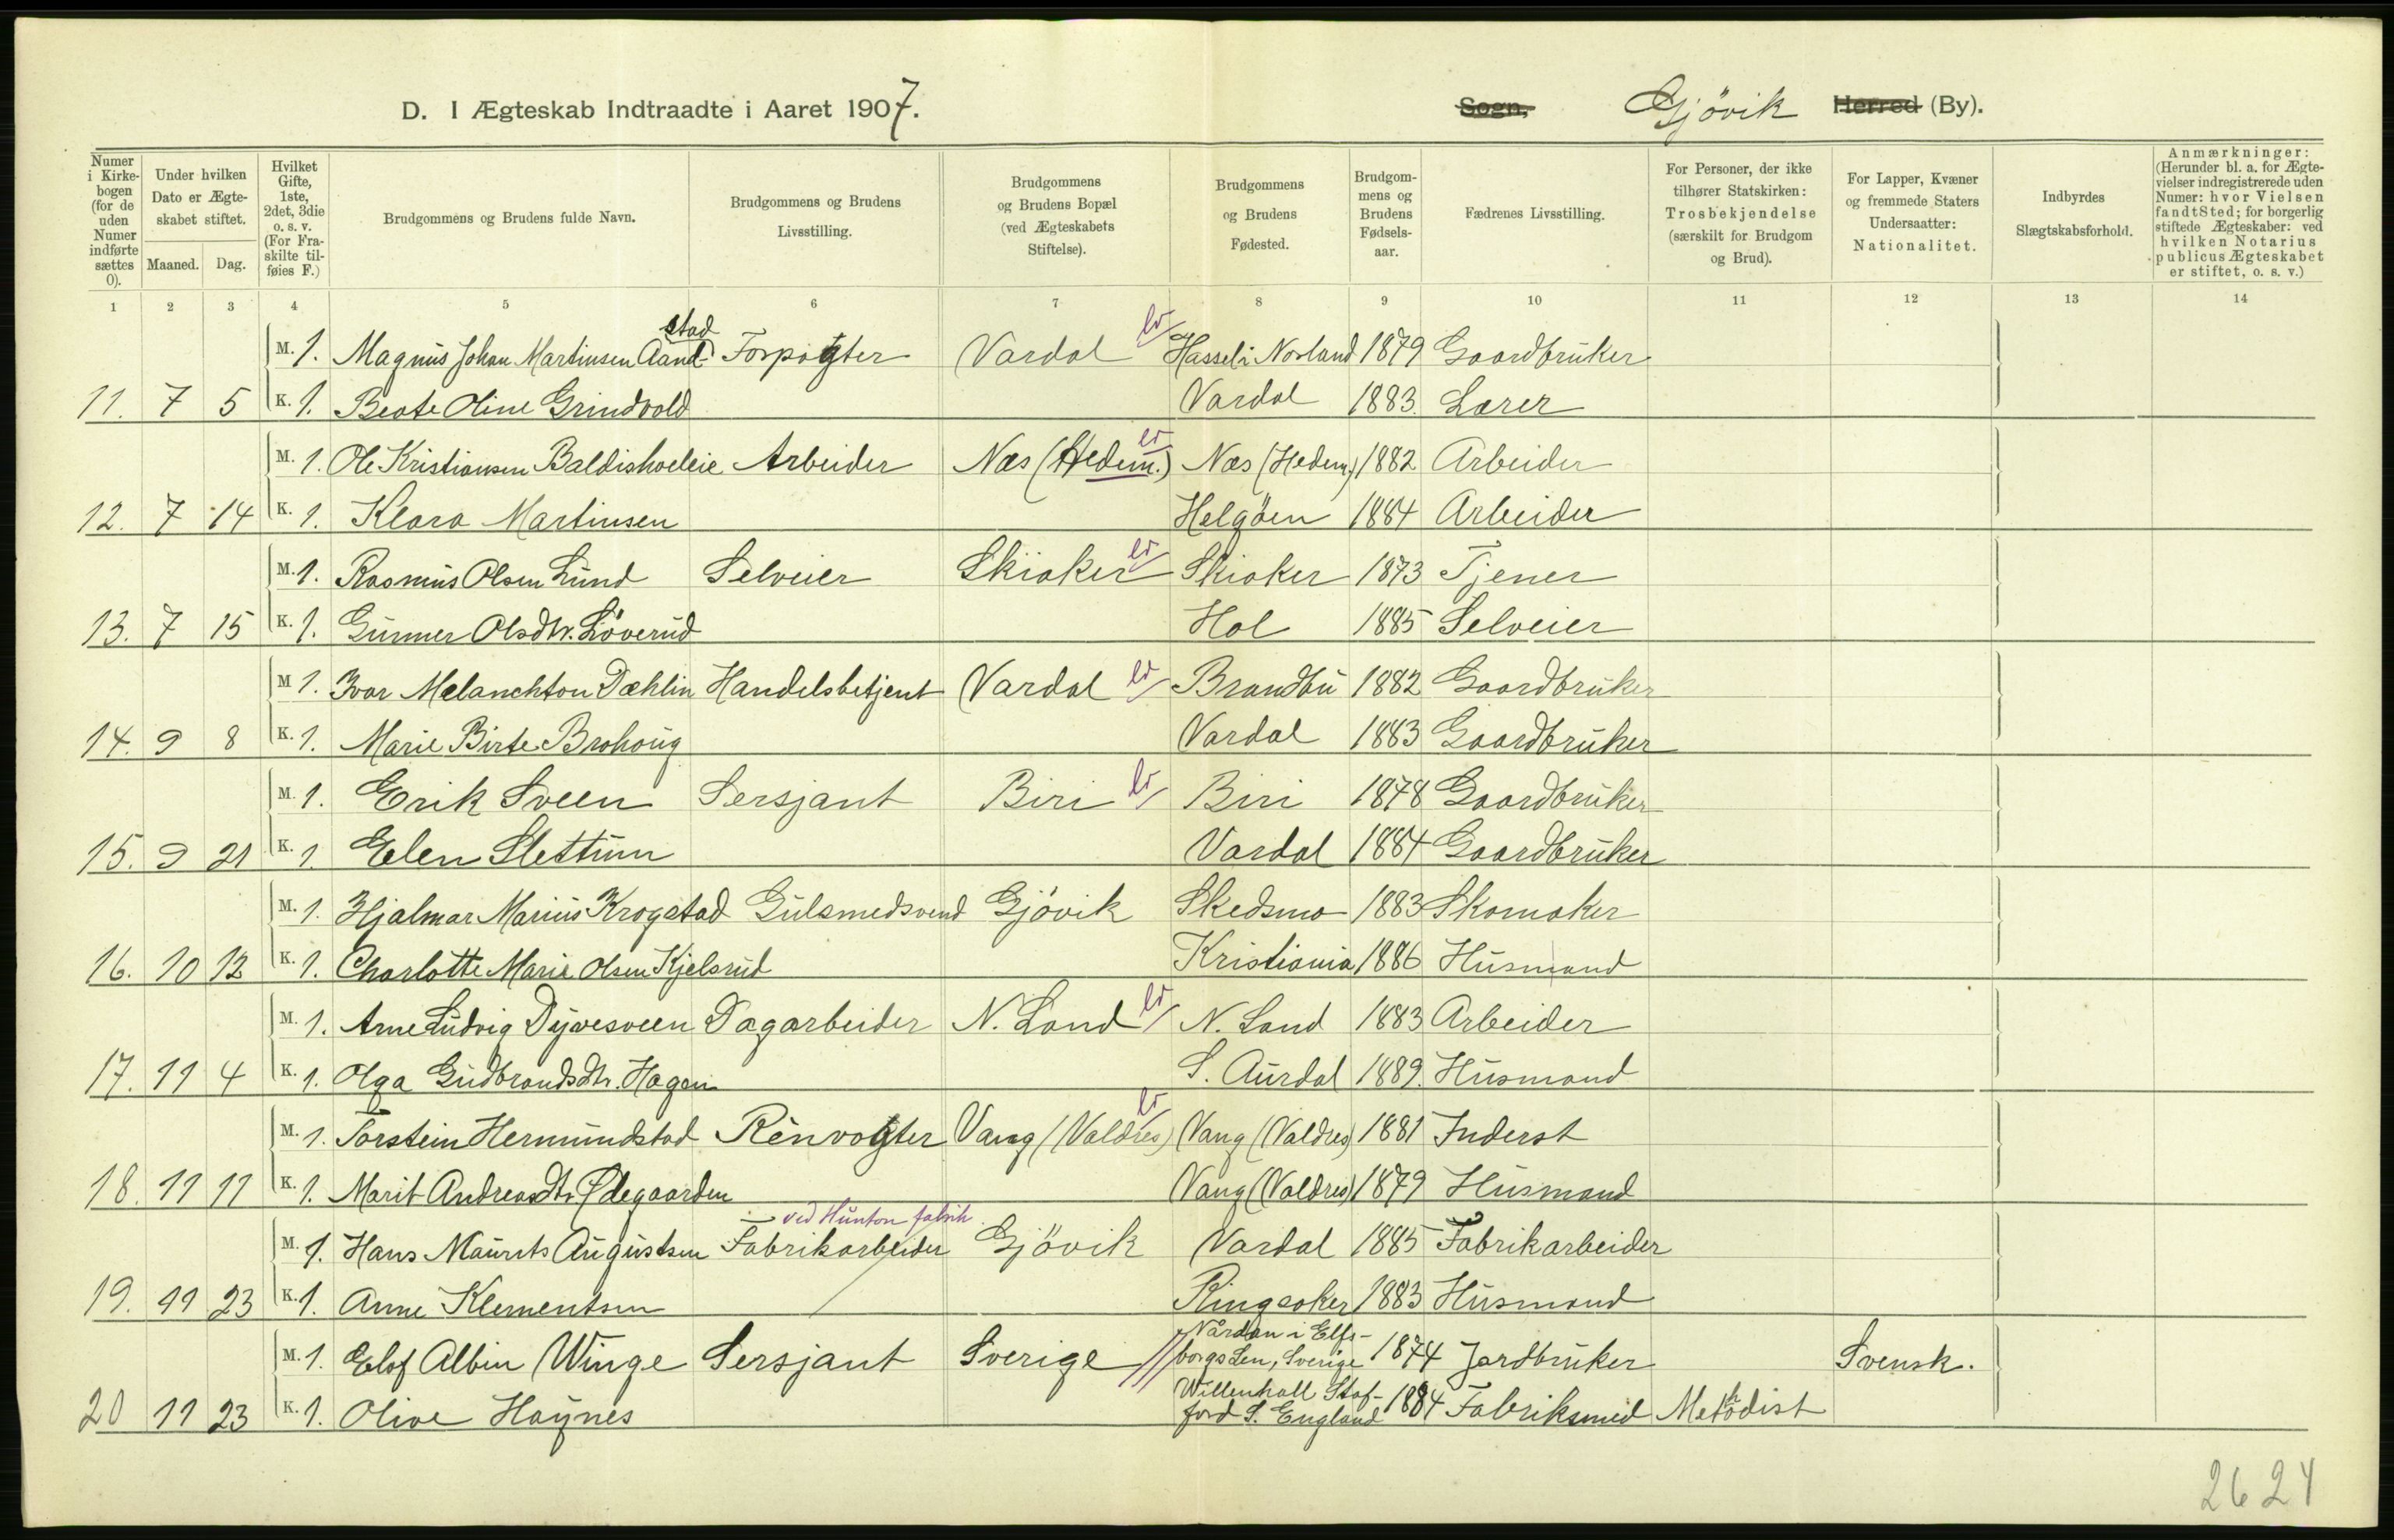 D. I Ægteskab Indtraadte i Aaret 1907.
Sogn, Gjövik Herred (By).
Numer i Kirkebogen (for de uden Numer indførte sættes 0).
Under hvilken Dato er Ægteskabet stiftet.
Maaned. Dag.
Hvilket Gifte, 1ste, 2det, 3die o. s. v. (For Fraskilte tilføies F.)
Brudgommens og Brudens fulde Navn.
Brudgommens og Brudens Livsstilling.
Brudgommens og Brudens Bopæl (ved Ægteskabets Stiftelse).
Brudgommens og Brudens Fødested.
Brudgommens og Brudens Fødselsaar.
Fædrenes Livsstilling.
For Personer, der ikke tilhører Statskirken: Trosbekjendelse (særskilt for Brudgom og Brud).
For Lapper, Kvæner og fremmede Staters Undersaatter: Nationalitet.
Indbyrdes Slægtskabsforhold.
Anmærkninger: (Herunder bl. a. for Ægtevielser indregistrerede uden Numer: hvor Vielsen fandt Sted; for borgerlig stiftede Ægteskaber: ved hvilken Notarius publicus Ægteskabet er stiftet, o. s. v.)
1 2 3 4 5 6 7 8 9 10 11 12 13 14
M. 1. Magnus Johan Martinsen Aandstad Forpagter Vardal ld Hassel i Norland 1879 Gaardbruker
11. 7 5 K. 1. Beate Oline Grindvold Vardal 1883. Lærer
M. 1. Ole Kristiansen Baldishoeleie Arbeider Næs (Hedem.) ld Næs (Hedem.) 1882 Arbeider
12. 7 14 K. 1. Klara Martinsen Helgöen 1884 Arbeider
M. 1. Rasmus Olsen Lund Selveier Skiaker ld Skiaker 1873 Tjener
13. 7 15 K. 1. Gunner Olsdtr. Löverud Hol 1885 Selveier
M 1. Ivar Melanchton Dæhlin Handelsbetjent Vardal ld Brandbu 1882 Gaardbruker
14. 9 8 K. 1. Marie Birte Brohoug Vardal 1883 Gaardbruker
M. 1. Erik Sveen Sersjant Biri ld Biri 1878 Gaardbruker
15. 9 21 K. 1. Elen Slettum Vardal 1884 Gaardbruker
M. 1. Hjalmar Marius Krogstad Gulsmedsvend Gjövik Skedsmo 1883 Skomaker
16. 10 12 K. 1. Charlotte Marie Olsen Kjelsrud Kristiania 1886 Husmand
M. 1. Arne Ludvig Dyvesveen Dagarbeider N. Land ld N. Land 1883 Arbeider
17. 11 4 K. 1. Olga Gudbrandsdtr. Hagen S. Aurdal 1889. Husmand
M. 1. Torstein Hermundstad Renvogter Vang (Valdres) ld Vang (Valdres) 1881 Inderst
18. 11 11 K. 1. Marit Andreasdtr Ødegaarden Vang (Valdres) 1879 Husmand
ved Hunton fabrik
M. 1. Hans Maurits Augustsen Fabrikarbeider Gjövik Vardal 1885 Fabrikarbeider
19. 11 23 K. 1. Anne Klementsen Ringsaker 1883 Husmand
M. 1. Elof Albin Winge Sersjant Sverige Vårdan i Elfsborgs Len, Sverige 1874 Jordbruker Svensk.
20 11 23 K. 1. Olive Haynes Willenhall Stafford S. England 1884 Fabriksmed Methodist
2624